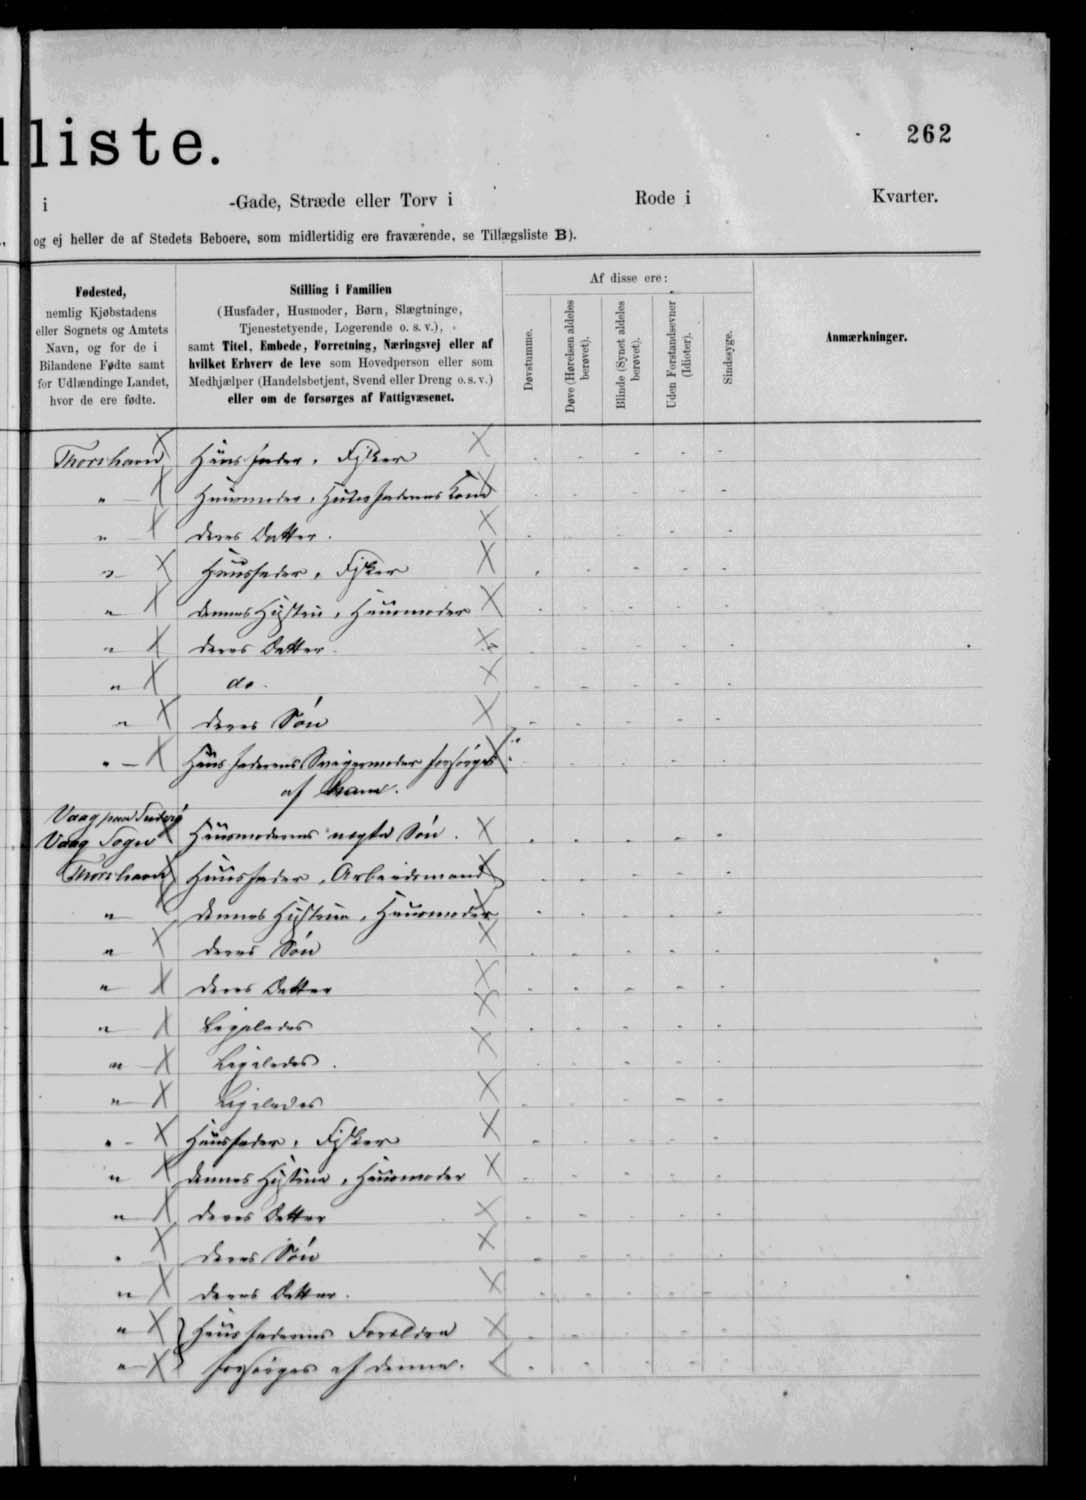 lliste.
262
i -Gade, Stræde eller Torv i Rode i Kvarter.
og ej heller de af Stedets Beboere, som midlertidig ere fraværende, se Tillægsliste B).
Fødested,
nemlig Kjøbstadens
eller Sognets og Amtets
Navn, og for de i
Bilandene Fødte samt
for Udlændinge Landet,
hvor de ere fødte.
Stilling i Familien
(Husfader, Husmoder, Børn, Slægtninge,
Tjenestetyende, Logerende o. s. v.),
samt Titel, Embede, Forretning, Næringsvej eller af
hvilket Erhverv de leve som Hovedperson eller som
Medhjælper (Handelsbetjent, Svend eller Dreng o. s. v.)
eller om de forsørges af Fattigvæsenet.
Af disse ere:
Døvstumme.
Døve (Hørelsen aldeles
berøvet).
Blinde (Synet aldeles
berøvet).
Uden Forstandsevner
(Idioter).
Sindssyge.
Anmærkninger.
Thorshavn Huusfader, Fisker
" Huusmoder, Husfaderens Kone
" deres Datter.
" Huusfader, Fisker
" dennes Hustru, Huusmoder
" deres Datter.
" do.
" deres Søn
" Huusfaderens Svigermoder forsørges
af ham.
Vaag paa Suderø
Vaag Sogn Huusmoderens uægte Søn.
Thorshavn Huusfader, Arbeidsmand
" dennes Hustrue, Huusmoder
" deres Søn
" deres Datter
" Ligeledes
" Ligeledes.
" Ligeledes
" Huusfader, Fisker
" dennes Hustrue, Huusmoder
" deres Datter
" deres Søn
" deres Datter.
" Huusfaderens Forældre
" forsørges af denne.